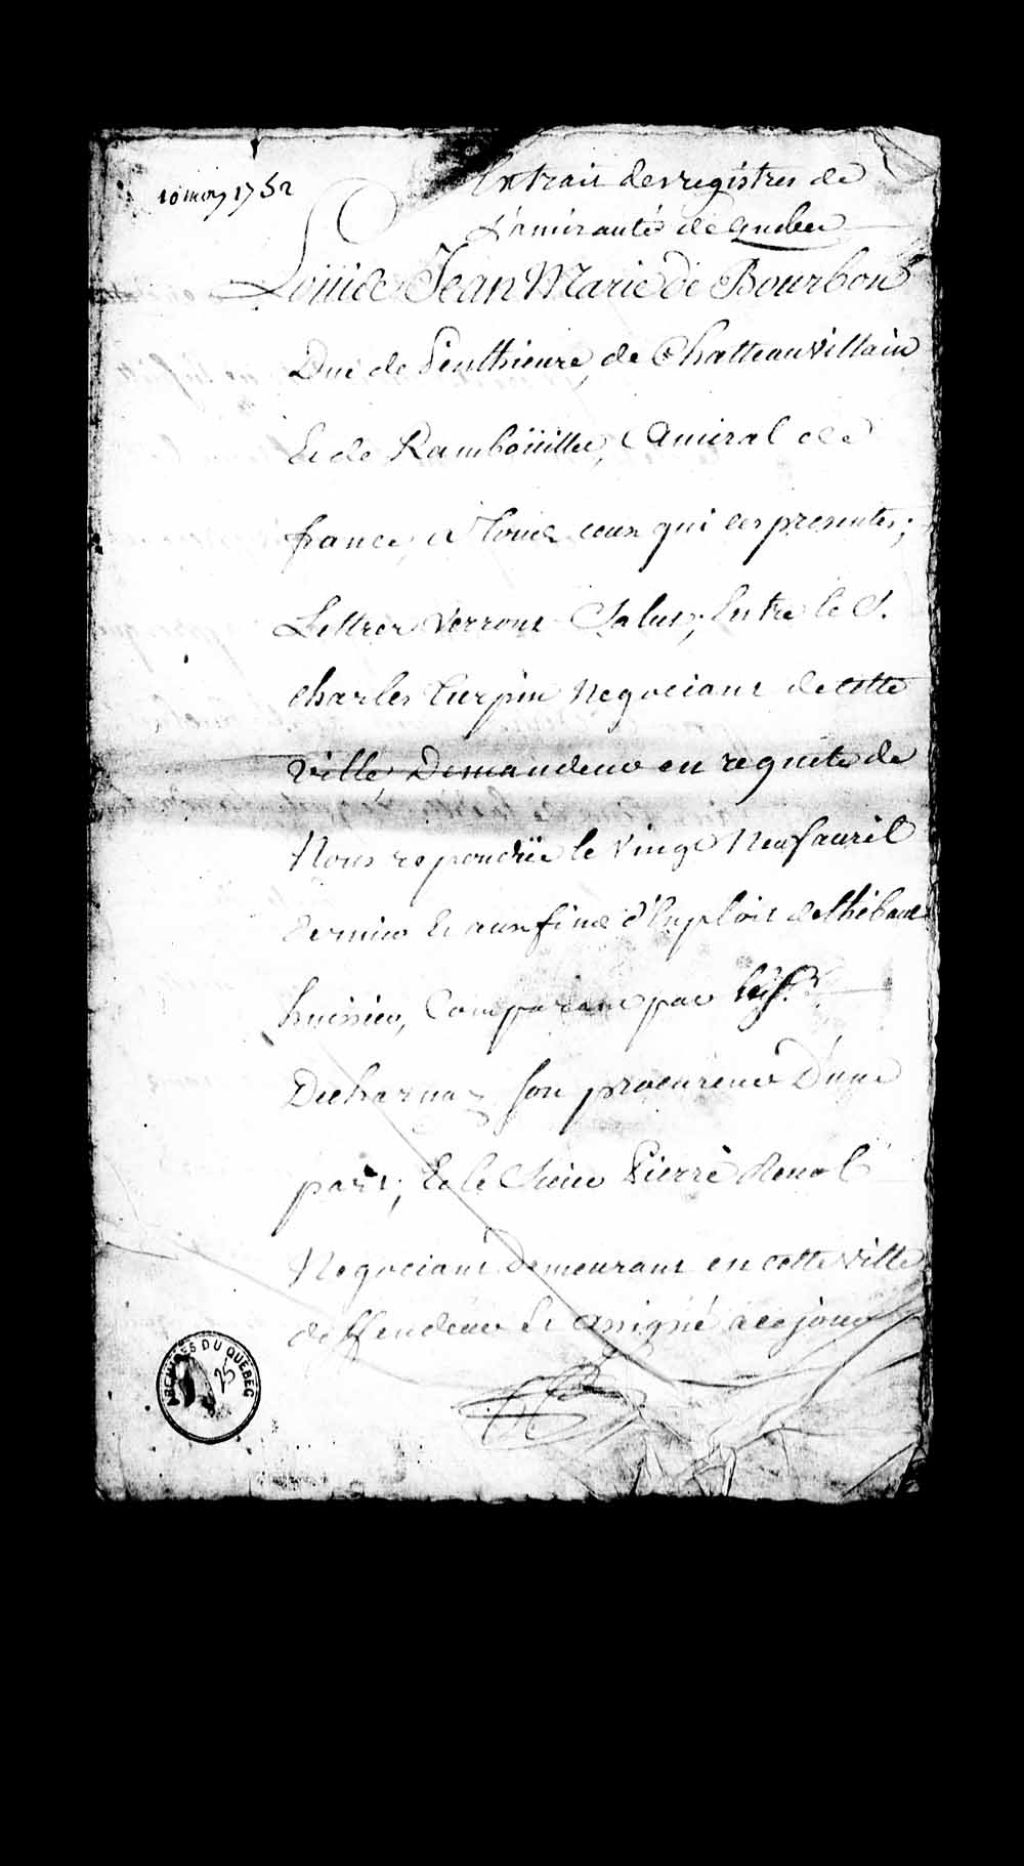 10 may 1752
Extrait des registres de
L'amirauté de Quebec
Loüis Jean Marie de Bourbon
Duc de Penthieure, de Chatteauvillain
Et de Ramboüillet, Amiral de
france, a Tous ceux qui ces presentes;
Lettres Verront Salut; Entre le S.
Charles Turpin Negociant de cette
Ville, Demandeur en requete de
Nous repondüe le Vingt Neuf auril
dernier Et aux fins d'Exploit de thibault
huissier, Comparant par le S.r
Decharnay son procureur D'une
part; Et le Sieur Pierre Renol
Negociant Demeurant en cette Ville
deffendeur Et assigné a ce jour
ARCHIVES DU QUÉBEC
25